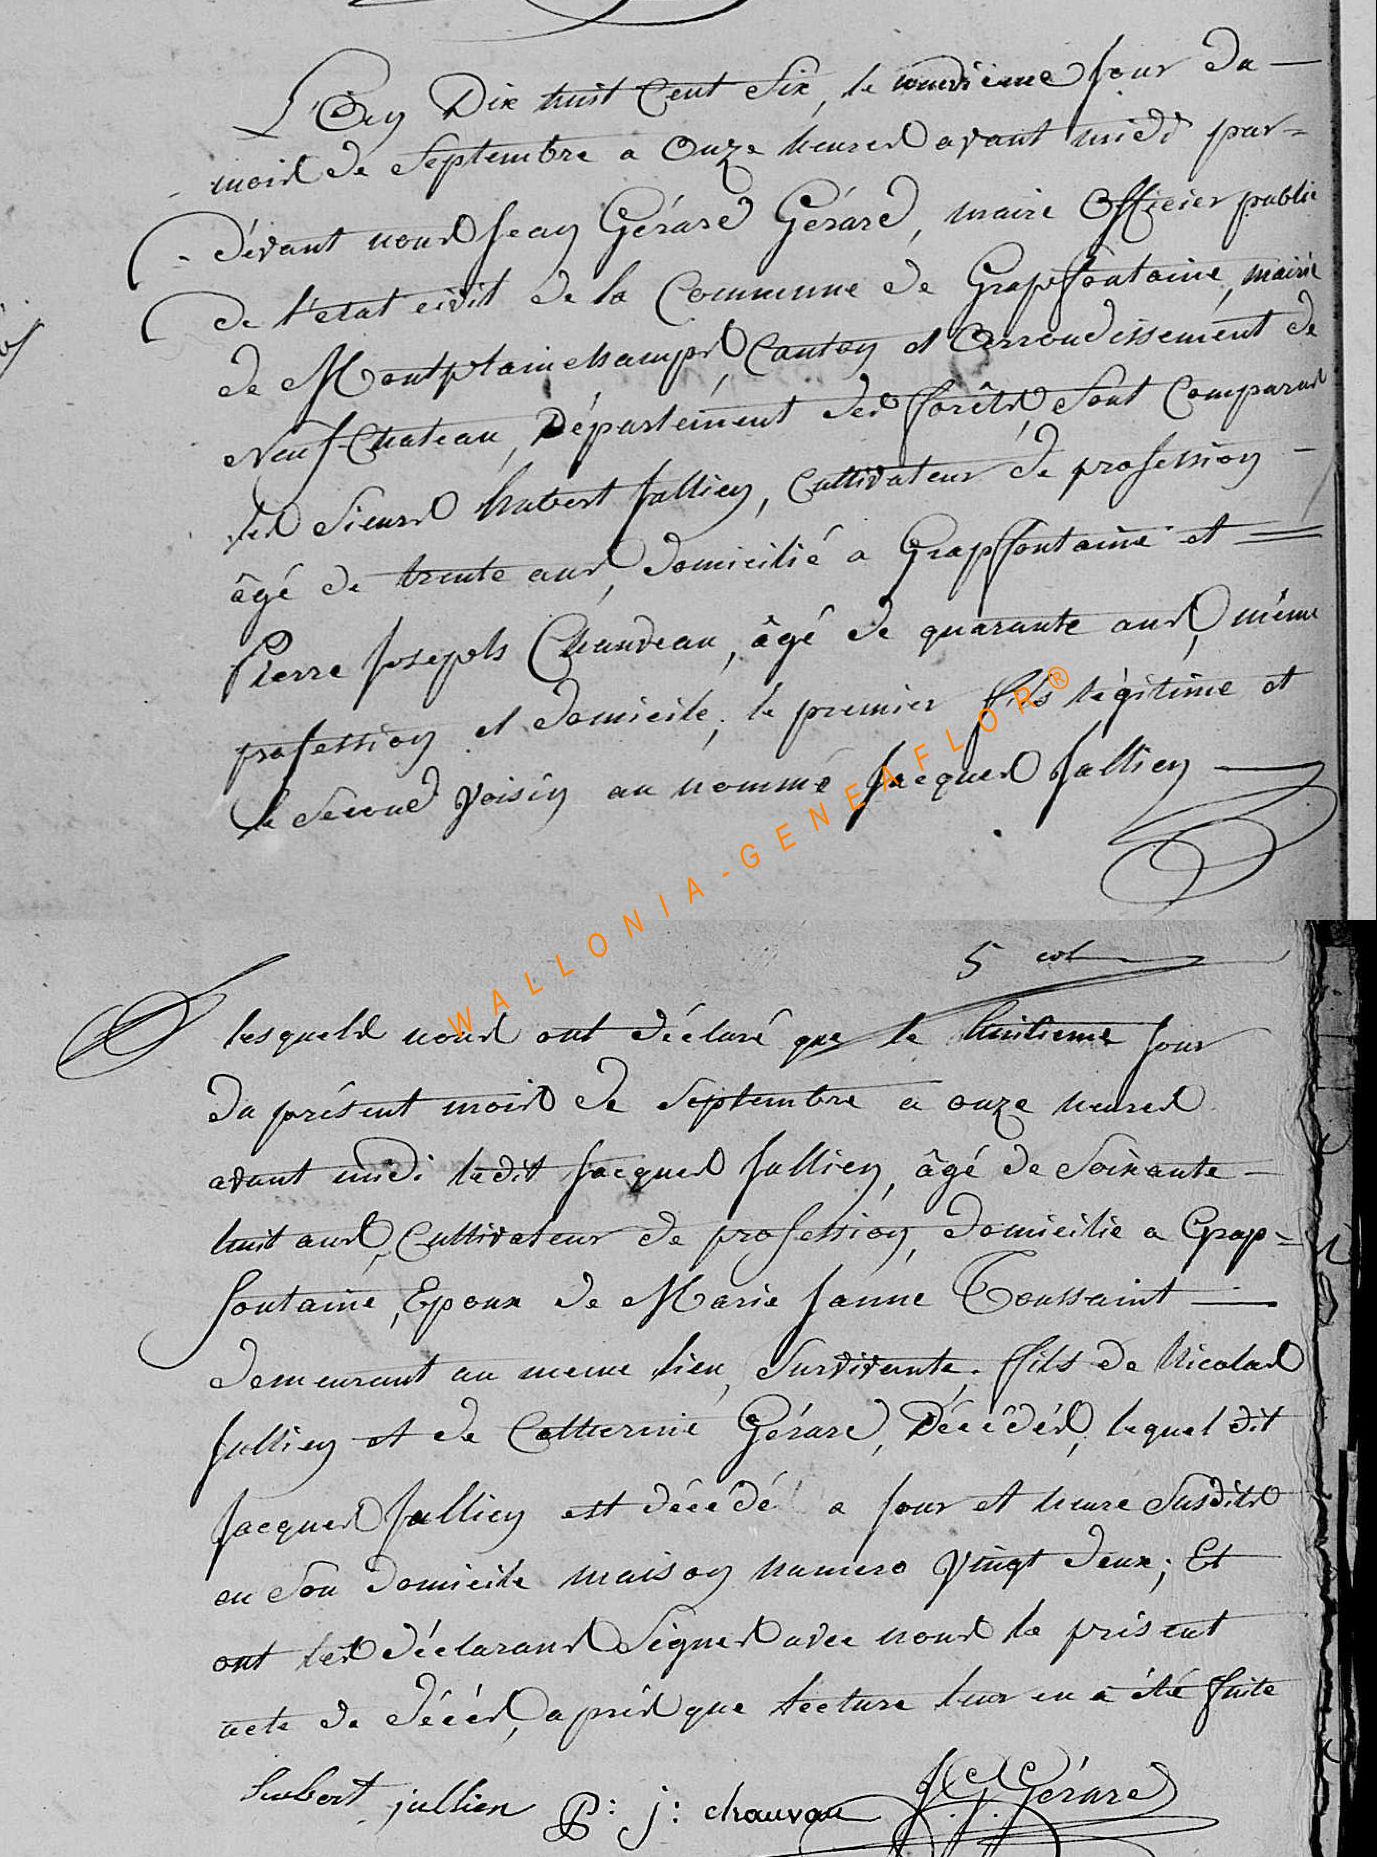 L'an Dix huit Cent Six, le onzieme jour du
mois de Septembre a onze heures avant midi par=
dévant nous Jean Gérard Gérard, maire Officier public
de l'état civil de la Commune de Grapfontaine, mairie
de Montplainchamps, Canton et Arrondissement de
Neufchateau, Département des forêts, Sont Comparus
les Sieurs hubert Jullien, Cultivateur de profession
âgé de trente ans, domicilié a Grapfontaine et
Pierre Joseph Chauveau, âgé de quarante ans, même
profession et domicile, le premier fils légitime et
le Second Voisin au nommé Jacques Jullien
WALLONIA-GENEAFLOR®
5
lesquels nous ont déclaré que le huitieme jour
du présent mois de Septembre a onze heures
avant midi ledit Jacques Jullien, âgé de Soixante
huit ans, Cultivateur de profession, domicilié a Grap=
fontaine, Epoux de Marie Janne Toussaint
demeurant au meme lieu, Survivante, fils de Nicolas
Jullien et de Catherine Gérard, Décédés, lequel dit
Jacques Jullien est décédé a jour et heure Susdits
en Son domicile maison numero Vingt deux; Et
ont les déclarans Signés avec nous le présent
acte de décés, après que lecture leur en a été faite
hubert jullien P: j: chauvau J. G. Gérard